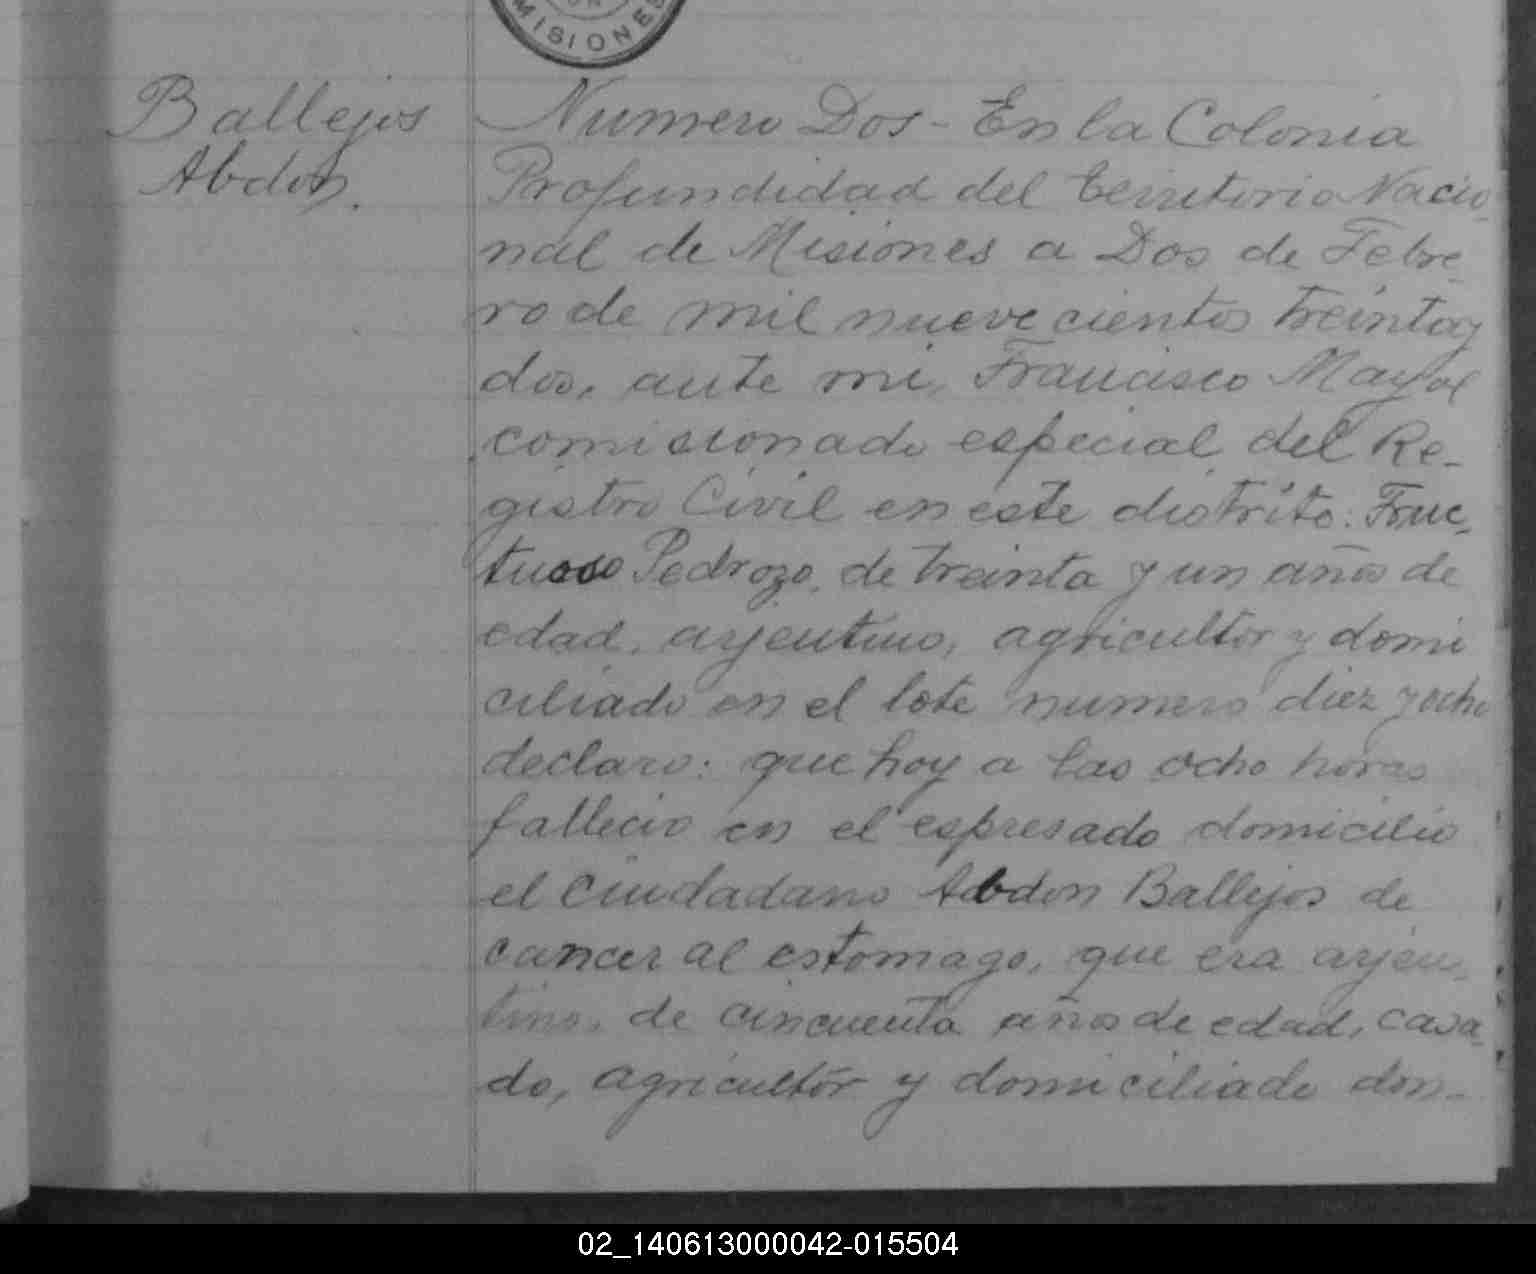 MISIONES
Ballejos
Abdon.
Numero Dos - En la Colonia
Profundidad del territorio Nacio-
nal de Misiones a Dos de Febre-
ro de mil nueve cientos treinta y
dos, ante mi, Francisco Mayol
comisionado especial del Re-
gistro Civil en este distrito: Fruc-
tuoso Pedrozo, de treinta y un años de
edad, arjentino, agricultor y domi
ciliado en el lote numero diez y ocho
declaro: que hoy a las ocho horas
fallecio en el espresado domicilio
el ciudadano Abdon Ballejos de
cancer al estomago, que era arjen-
tino, de cincuenta años de edad, casa-
do, agricultor y domiciliado don-
02_140613000042-015504